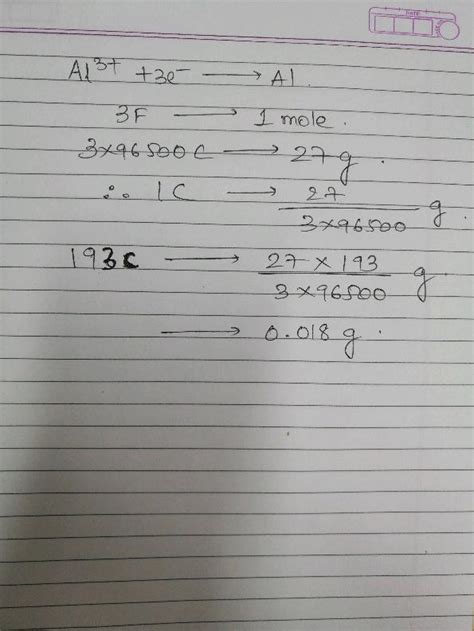 DATE
Al³⁺ + 3e⁻ ⟶ Al.
3F ⟶ 1 mole.
3×96500C ⟶ 27g.
∴ 1C ⟶ 27/3×96500 g.
193C ⟶ 27 × 193/3×96500 g
⟶ 0.018 g.